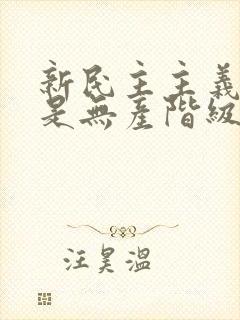 新民主主義
是無產階級
汪昊溫